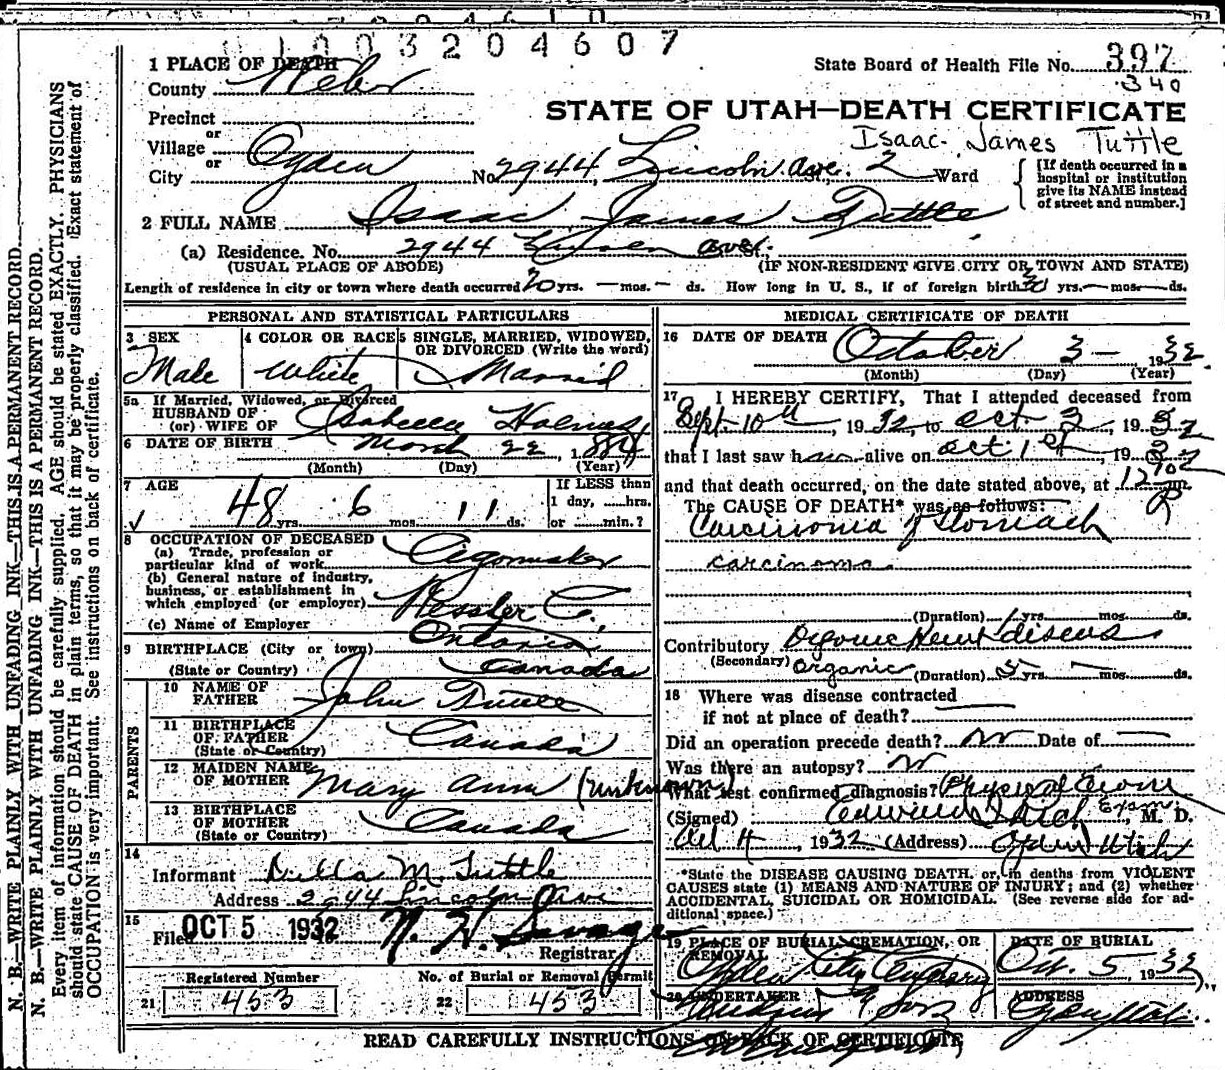 0100320 4607
1 PLACE OF DEATH
State Board of Health File No. 397
340
County Weber
STATE OF UTAH—DEATH CERTIFICATE
Precinct
or
Isaac James Tuttle
Village
or
City Ogden No. 2944 Lincoln Ave. 2 Ward
[If death occurred in a
hospital or institution
give its NAME instead
of street and number.]
2 FULL NAME Isaac James Tuttle
(a) Residence. No. 2944 ave.
(USUAL PLACE OF ABODE) (IF NON-RESIDENT GIVE CITY OR TOWN AND STATE)
Length of residence in city or town where death occurred 20 yrs. — mos. — ds. How long in U. S., if of foreign birth yrs. — mos. — ds.
PERSONAL AND STATISTICAL PARTICULARS
3 SEX
Male
4 COLOR OR RACE
White
5 SINGLE, MARRIED, WIDOWED,
OR DIVORCED (Write the word)
Married
5a If Married, Widowed, or Divorced
HUSBAND OF
(or) WIFE OF Isabella Holmes
6 DATE OF BIRTH March 22, 1884
(Month) (Day) (Year)
7 AGE
48 yrs. 6 mos. 11 ds.
If LESS than
1 day, ......hrs.
or ......min.?
8 OCCUPATION OF DECEASED
(a) Trade, profession or
particular kind of work Cigarmaker
(b) General nature of industry,
business, or establishment in
which employed (or employer) Kessler C.,
(c) Name of Employer
9 BIRTHPLACE (City or town) Ontario
(State or Country) Canada
PARENTS
10 NAME OF
FATHER John Tuttle
11 BIRTHPLACE
OF FATHER
(State or Country) Canada
12 MAIDEN NAME
OF MOTHER Mary Ann (unknown)
13 BIRTHPLACE
OF MOTHER
(State or Country) Canada
14
Informant Della M. Tuttle
Address 2944 Lincoln Ave
15
Filed OCT 5 1932 N. H. Savage
Registrar
Registered Number
21 453
No. of Burial or Removal Permit
22 453
MEDICAL CERTIFICATE OF DEATH
16 DATE OF DEATH October 3 — 1932
(Month) (Day) (Year)
17 I HEREBY CERTIFY, That I attended deceased from
Sept 10th, 1932, to Oct 3, 1932
that I last saw h alive on Oct 1st, 1932
and that death occurred, on the date stated above, at m.
The CAUSE OF DEATH* was as follows:
Carcinoma of Stomach
carcinoma
(Duration) 1 yrs. mos. ds.
Contributory Organic Heart disease
(Secondary) organic (Duration) 5 yrs. — mos. ds.
18 Where was disease contracted
if not at place of death? —
Did an operation precede death? no Date of —
Was there an autopsy? no
What test confirmed diagnosis? Physical Exam
Exam
(Signed) Edward I Rich, M. D.
Oct 4, 1932 (Address) Ogden Utah
*State the DISEASE CAUSING DEATH, or, in deaths from VIOLENT
CAUSES state (1) MEANS AND NATURE OF INJURY; and (2) whether
ACCIDENTAL, SUICIDAL OR HOMICIDAL. (See reverse side for ad-
ditional space.)
19 PLACE OF BURIAL, CREMATION, OR
REMOVAL
Ogden City Cemetary
DATE OF BURIAL
Oct. 5, 1932
20 UNDERTAKER
& Sons
ADDRESS
Ogden Utah
READ CAREFULLY INSTRUCTIONS ON BACK OF CERTIFICATE
N. B.—WRITE PLAINLY WITH UNFADING INK—THIS IS A PERMANENT RECORD.
N. B.—WRITE PLAINLY WITH UNFADING INK—THIS IS A PERMANENT RECORD.
Every item of information should be carefully supplied. AGE should be stated EXACTLY. PHYSICIANS
should state CAUSE OF DEATH in plain terms, so that it may be properly classified. Exact statement of
OCCUPATION is very important. See instructions on back of certificate.